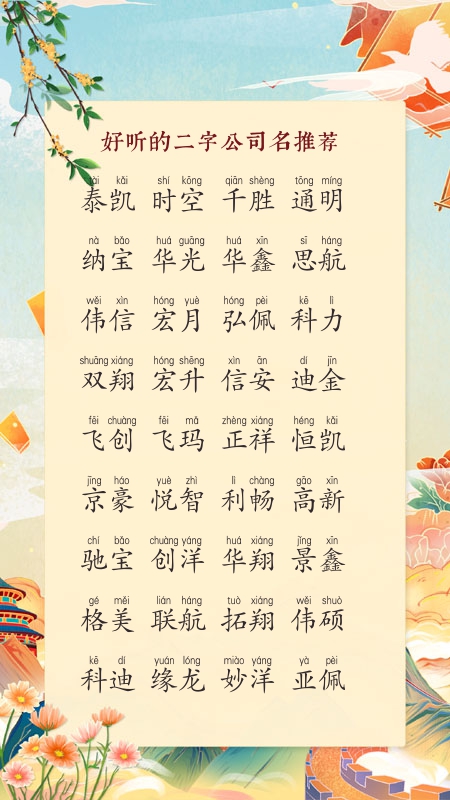 好听的二字公司名推荐
tài kǎi shí kōng qiān shèng tōng míng
泰凯 时空 千胜 通明
nà bǎo huá guāng huá xīn sī háng
纳宝 华光 华鑫 思航
wěi xìn hóng yuè hóng pèi kē lì
伟信 宏月 弘佩 科力
shuāng xiáng hóng shēng xìn ān dí jīn
双翔 宏升 信安 迪金
fēi chuàng fēi mǎ zhèng xiáng héng kǎi
飞创 飞玛 正祥 恒凯
jīng háo yuè zhì lì chàng gāo xīn
京豪 悦智 利畅 高新
chí bǎo chuàng yáng huá xiáng jǐng xīn
驰宝 创洋 华翔 景鑫
gé měi lián háng tuò xiáng wěi shuò
格美 联航 拓翔 伟硕
kē dí yuán lóng miào yáng yà pèi
科迪 缘龙 妙洋 亚佩